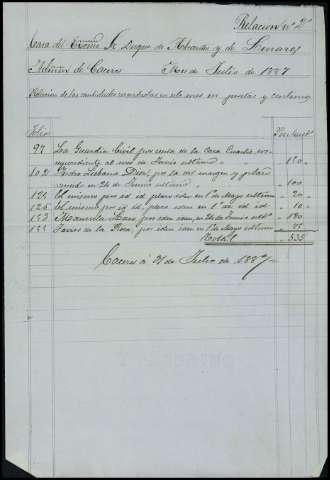 Relacion nº 2º
Casa del Excmo Sr. Duque de Abrantes y de Linares
Admon de Caceres Mes de Julio de 1887
Relacion de las cantidades recaudadas en este mes en puntas y
Folio Ptas
97 La Guardia Civil por renta de la Casa Cuartel cor-
respondiente al mes de Junio ultimo 150
102 Pedro por la del margen y plazo
en 24 de Junio ultimo 100
121 El mismo por id plazo idem en 1º de Mayo ultimo 20
125 El mismo por id plazo idem en 1º de id id 10
133 Manuela por idem idem en 24 de Junio ultº 180
133 Javier de la Rosa por idem idem en 1º de Mayo ultimo 75
Total 535
Caceres á 31 de Julio de 1887